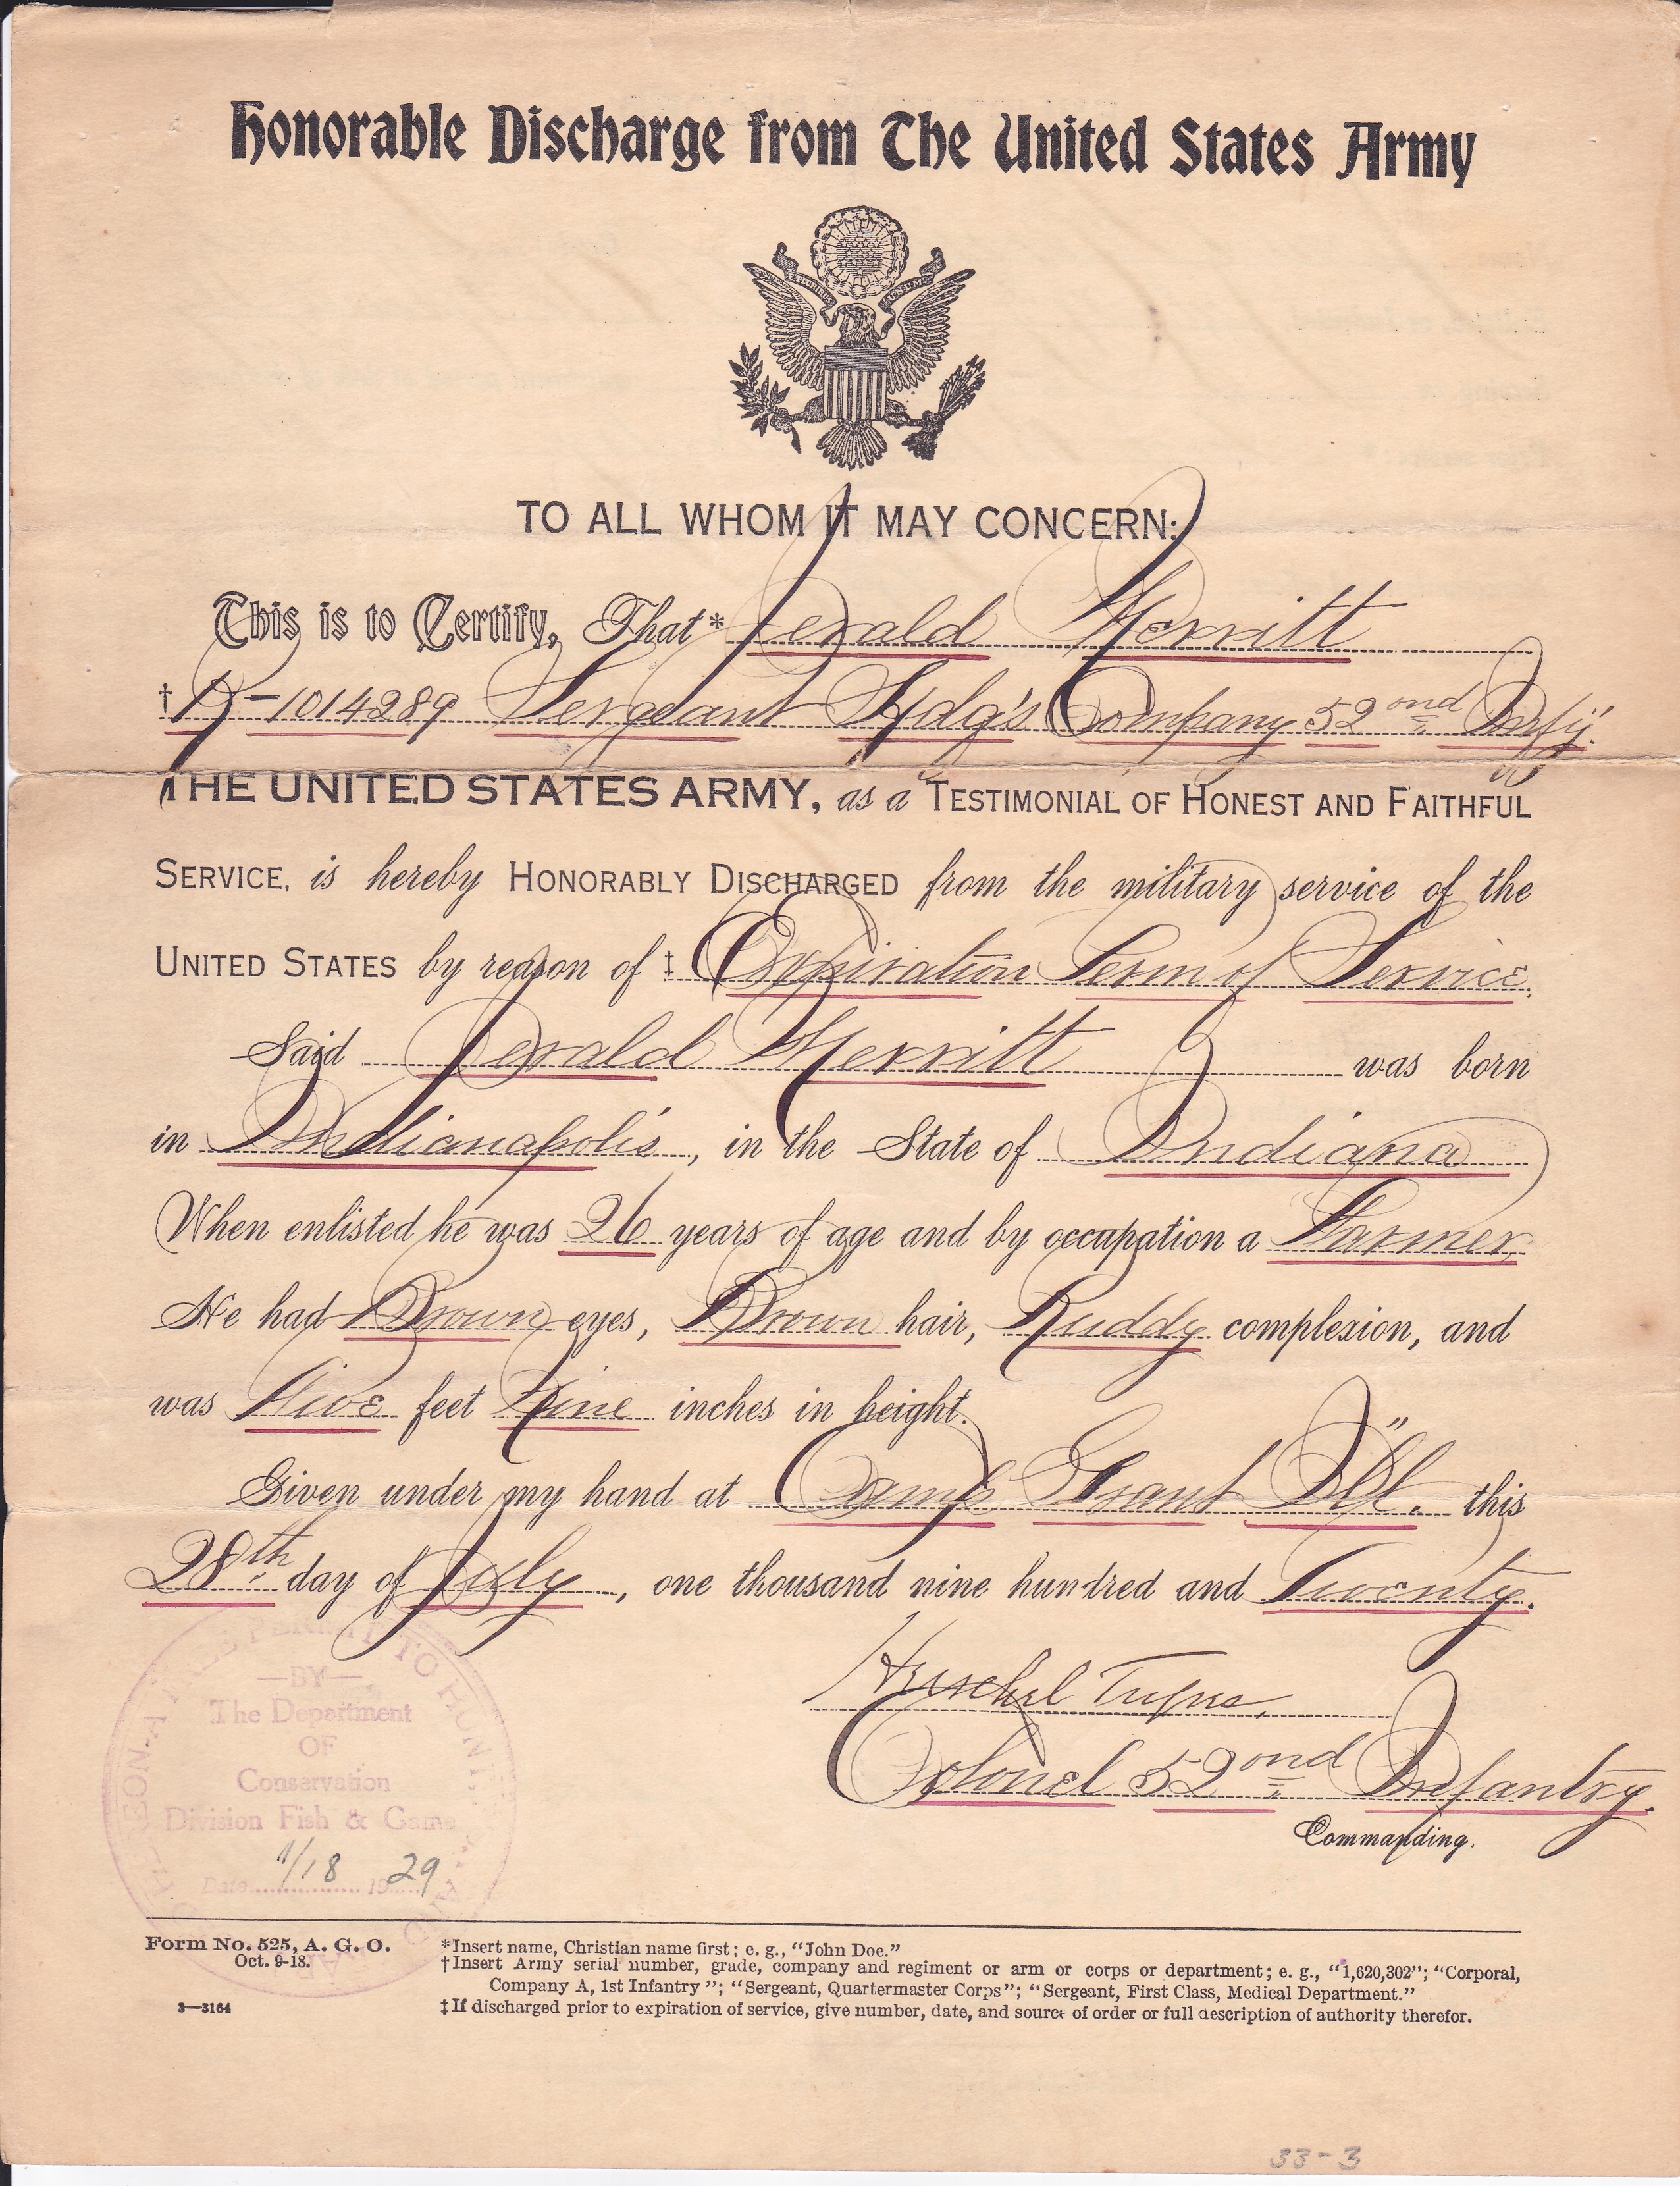 Honorable Discharge from The United States Army
E PLURIBUS UNUM
TO ALL WHOM IT MAY CONCERN:
This is to Certify, That* Jerald Merritt
† R-1014289 Sergeant Hdq's Company 52nd Inf'y.
THE UNITED STATES ARMY, as a TESTIMONIAL OF HONEST AND FAITHFUL
SERVICE, is hereby HONORABLY DISCHARGED from the military service of the
UNITED STATES by reason of ‡ Expiration Term of Service.
Said Jerald Merritt was born
in Indianapolis, in the State of Indiana
When enlisted he was 26 years of age and by occupation a Farmer.
He had Brown eyes, Brown hair, Ruddy complexion, and
was Five feet Nine inches in height.
Given under my hand at Camp Grant Ill. this
28th day of July, one thousand nine hundred and Twenty.
Herschel Tupes,
Colonel 52nd Infantry.
Commanding.
PERMIT TO HUNT
—BY—
The Department
OF
Conservation
Division Fish & Game
Date 1/18 1929
Form No. 525, A. G. O.
Oct. 9-18.
3—3164
*Insert name, Christian name first; e. g., "John Doe."
†Insert Army serial number, grade, company and regiment or arm or corps or department; e. g., "1,620,302"; "Corporal,
Company A, 1st Infantry"; "Sergeant, Quartermaster Corps"; "Sergeant, First Class, Medical Department."
‡If discharged prior to expiration of service, give number, date, and source of order or full description of authority therefor.
33-3